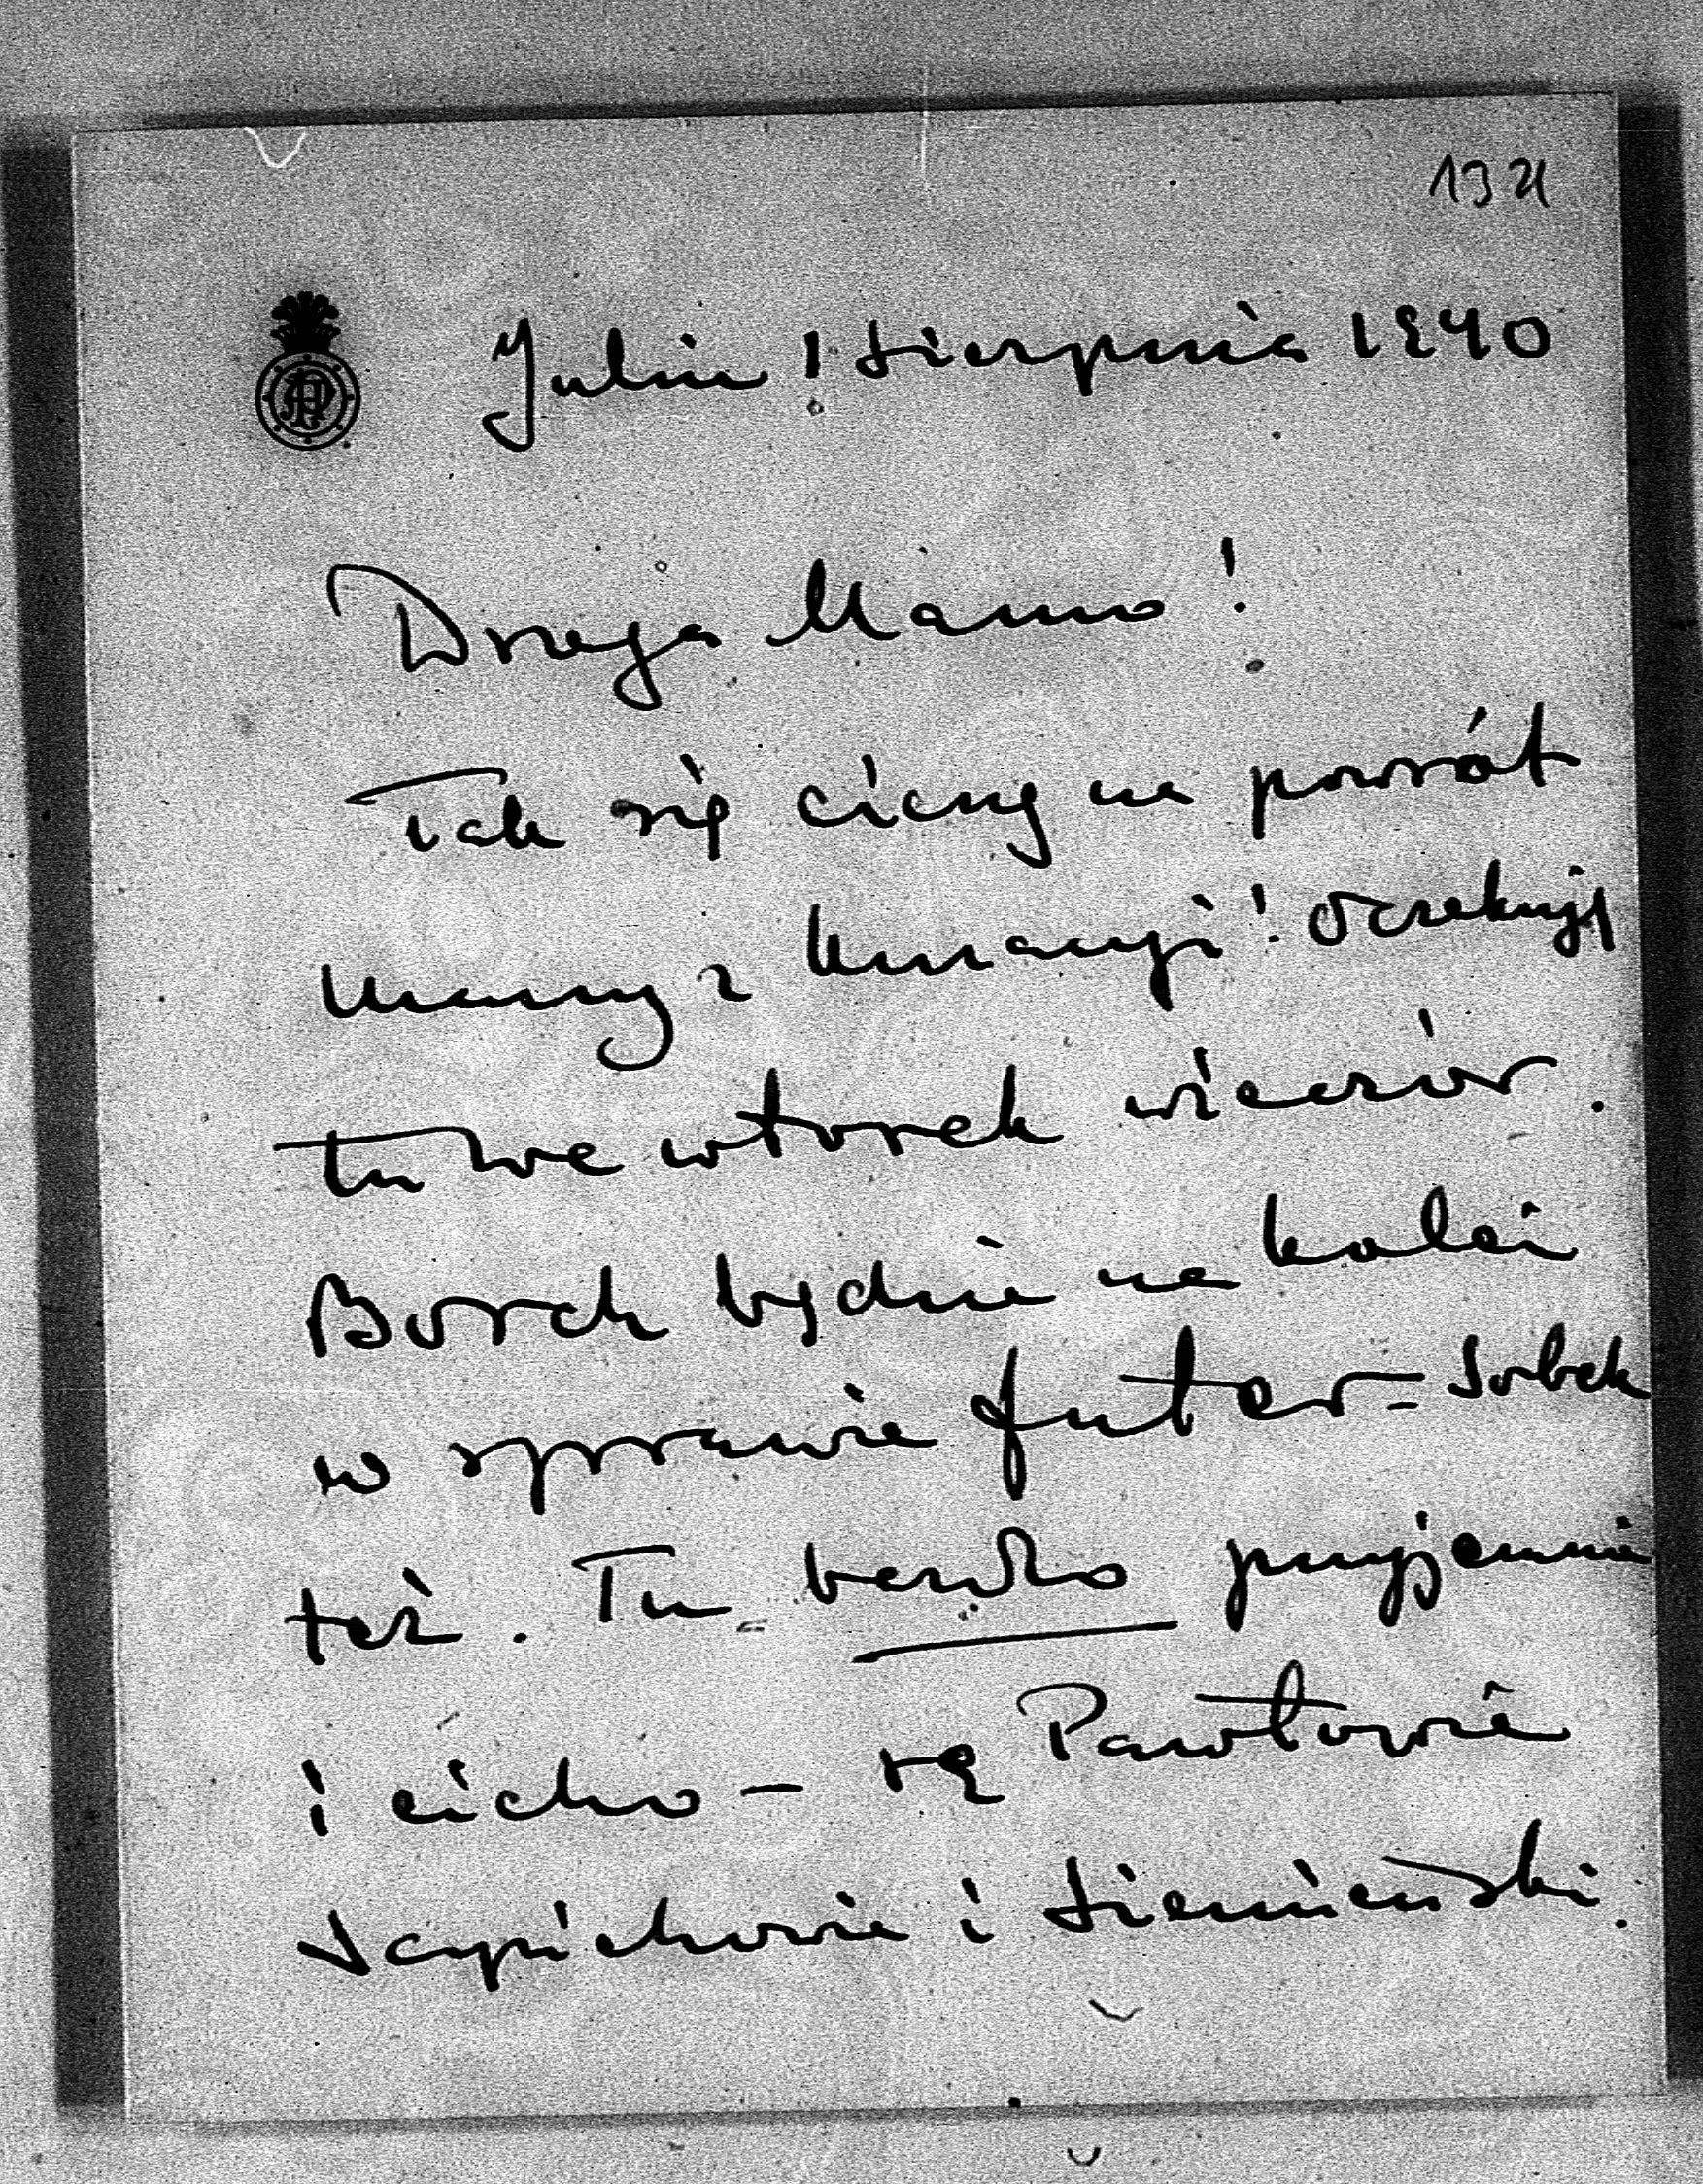 132
Julin 1 Sierpnia 1940
Droga Mamo!
Tak się cieszę na powrót
Mamy z kuracyi! Oczekuję
tu we wtorek wieczór.
Borch będzie na kolei
w sprawie futer = Sobek
też. Tu bardzo przyjemnie
i cicho — są Pawłowie
Sapiehowie i Siemieński.